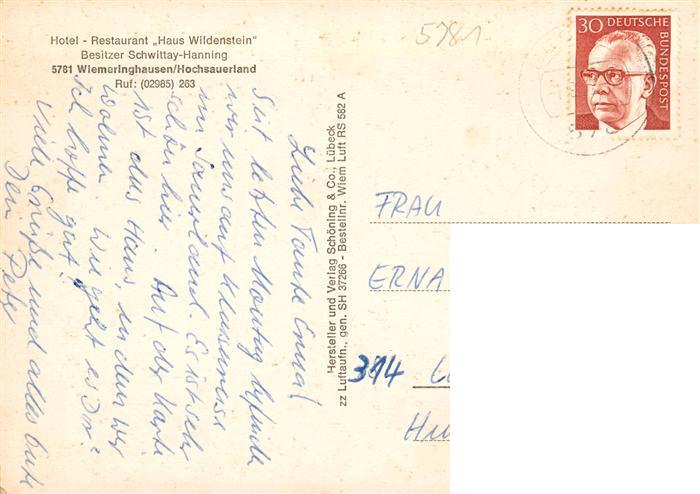 Hotel - Restaurant „Haus Wildenstein"
Besitzer Schwittay-Hanning
5781 Wiemeringhausen/Hochsauerland
Ruf: (02985) 263
5781
30 DEUTSCHE BUNDESPOST
Liebe Tante Erna!
Seit letzten Montag befinden
wir uns auf Klassenreise
im Sauerland. Es ist sehr
schön hier. Auf der Karte
ist das Haus, in dem wir
wohnen. Wie geht es Dir?
Ich hoffe gut!
Viele Grüße und alles Gute
Dein
Peter
Hersteller und Verlag Schöning & Co., Lübeck
zz Luftaufn., gen. SH 37266 - Bestellnr. Wiem Luft RS 582 A
FRAU
ERNA
314